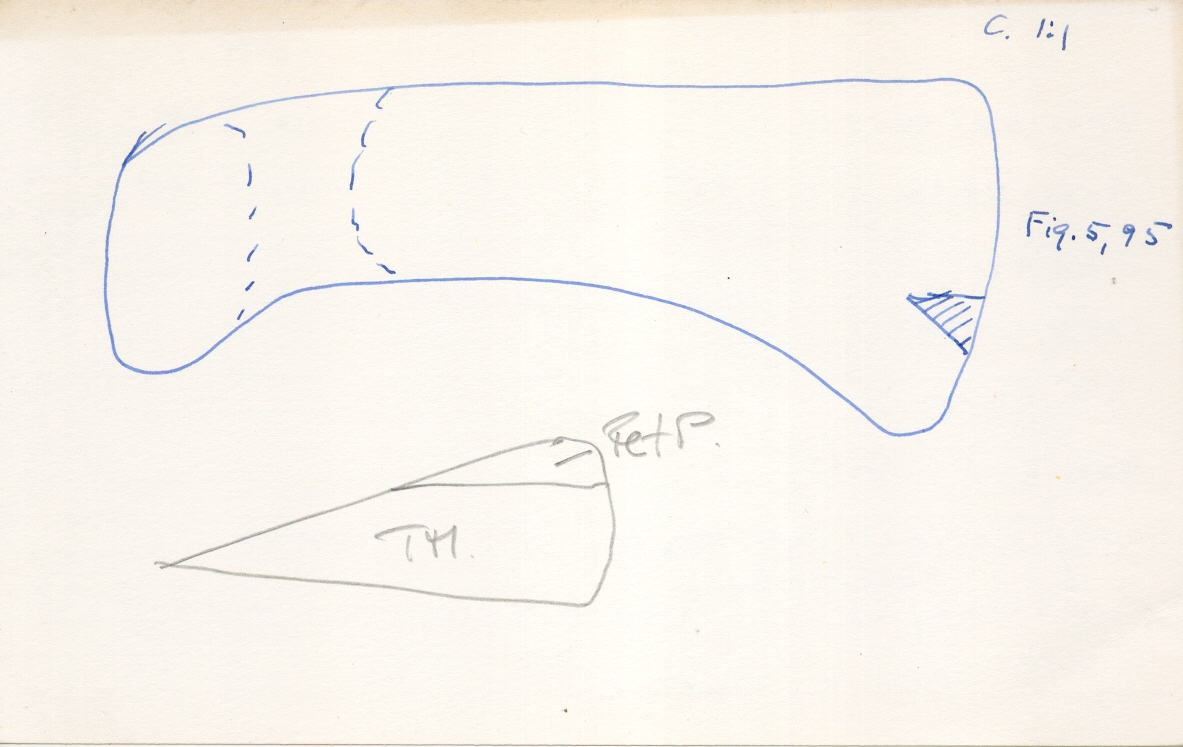 C. 1:1
Fig. 5, 95
Pet P.
TM.